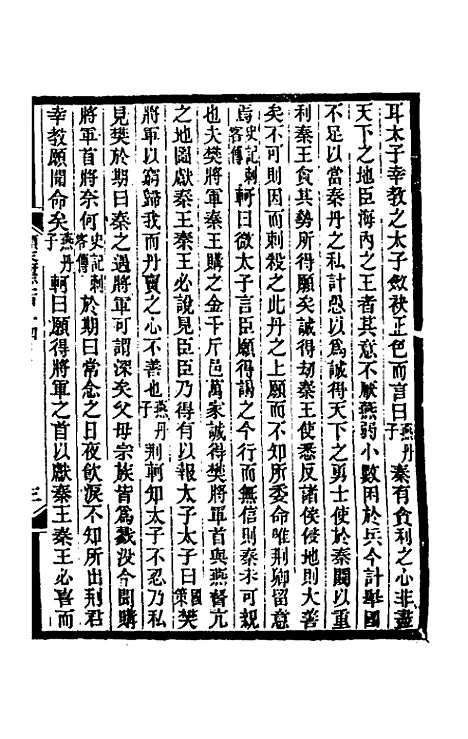 耳太子幸教之太子斂袂正色而言曰燕丹子秦有貪利之心非盡
天下之地臣海內之王者其意不厭燕弱小數困於兵今計舉國
不足以當秦丹之私計愚以爲誠得天下之勇士使於秦闚以重
利秦王貪其勢所得願矣誠得劫秦王使悉反諸侯侵地則大善
矣不可則因而刺殺之此丹之上願而不知所委命唯荆卿留意
焉史記刺客傳軻曰微太子言臣願得謁之今行而無信則秦未可親
也夫樊將軍秦王購之金千斤邑萬家誠得樊將軍首與燕督亢
之地圖獻秦王秦王必說見臣臣乃得有以報太子太子曰國策樊
將軍以窮歸我而丹賣之心不善也燕丹子荆軻知太子不忍乃私
見樊於期曰秦之遇將軍可謂深矣父母宗族皆爲戮沒今聞購
將軍首將奈何史記刺客傳於期曰常念之日夜飲淚不知所出荆君
幸教願聞命矣燕丹子軻曰願得將軍之首以獻秦王秦王必喜而
三